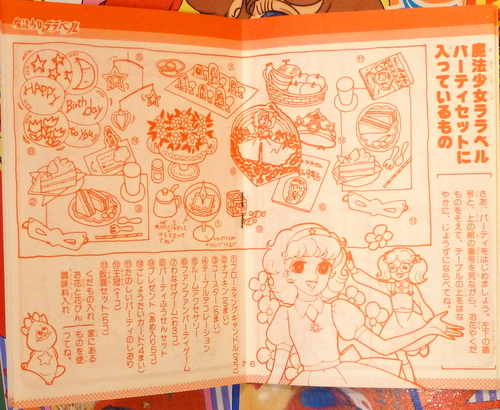 魔法少女ララベル
魔法少女ララベル
パーティセットに
入っているもの
さあ、パーティをはじめましょう。左下の番
号と、上の絵の番号を見ながら、お花やくだ
ものをそえて、テーブルの上をはな
やかに、じょうずにならべてね。
HAPPY
Birth day
To You
①フローティングキャンドル
③コースター(5まい)
④テーブルデコレーション
⑤ルームアクセサリー
⑥ファンタジアンパーティゲーム
⑦わなげゲーム
⑧パーティふうせんセット
⑨プレゼント
⑩しょうたいカード(4まい)
⑪たのしいパーティのしおり
⑫王冠(1コ)
⑬仮面セット
くだもの入れ
お花と花びん
調味料入れ
家にある
ものを使
ってね。
7 6